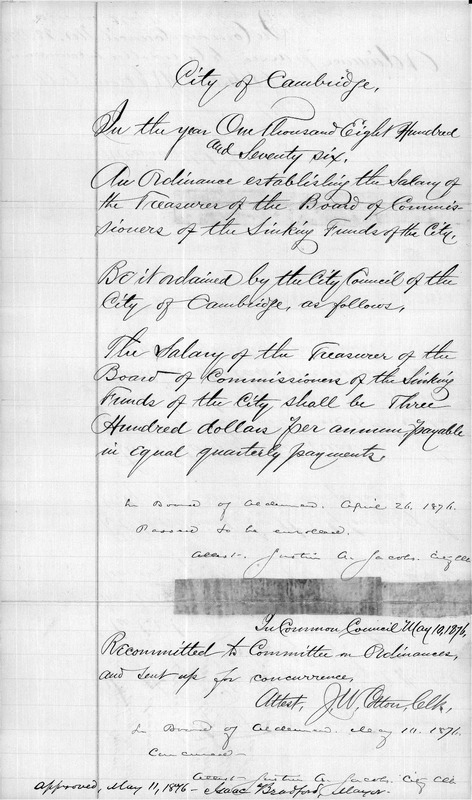 City of Cambridge,
In the year One Thousand Eight Hundred
and Seventy six.
An Ordinance establishing the Salary of
the Treasurer of the Board of Commis-
sioners of the Sinking Funds of the City.
Be it ordained by the City Council of the
City of Cambridge, as follows,
The Salary of the Treasurer of the
Board of Commissioners of the Sinking
Funds of the City shall be Three
Hundred dollars per annum payable
in equal quarterly payments.
In Board of Aldermen. April 26. 1876.
Passed to be enrolled.
Attest- Justin A. Jacobs. City Clk
In Common Council May 10, 1876,
Recommitted to Committee on Ordinances,
and sent up for concurrence,
Attest, J. W. Cotton, Clk,
In Board of Aldermen. May 10. 1876.
Concurred-
Attest- Justin A. Jacobs. City Clk
Approved, May 11, 1876- Isaac Bradford, Mayor.